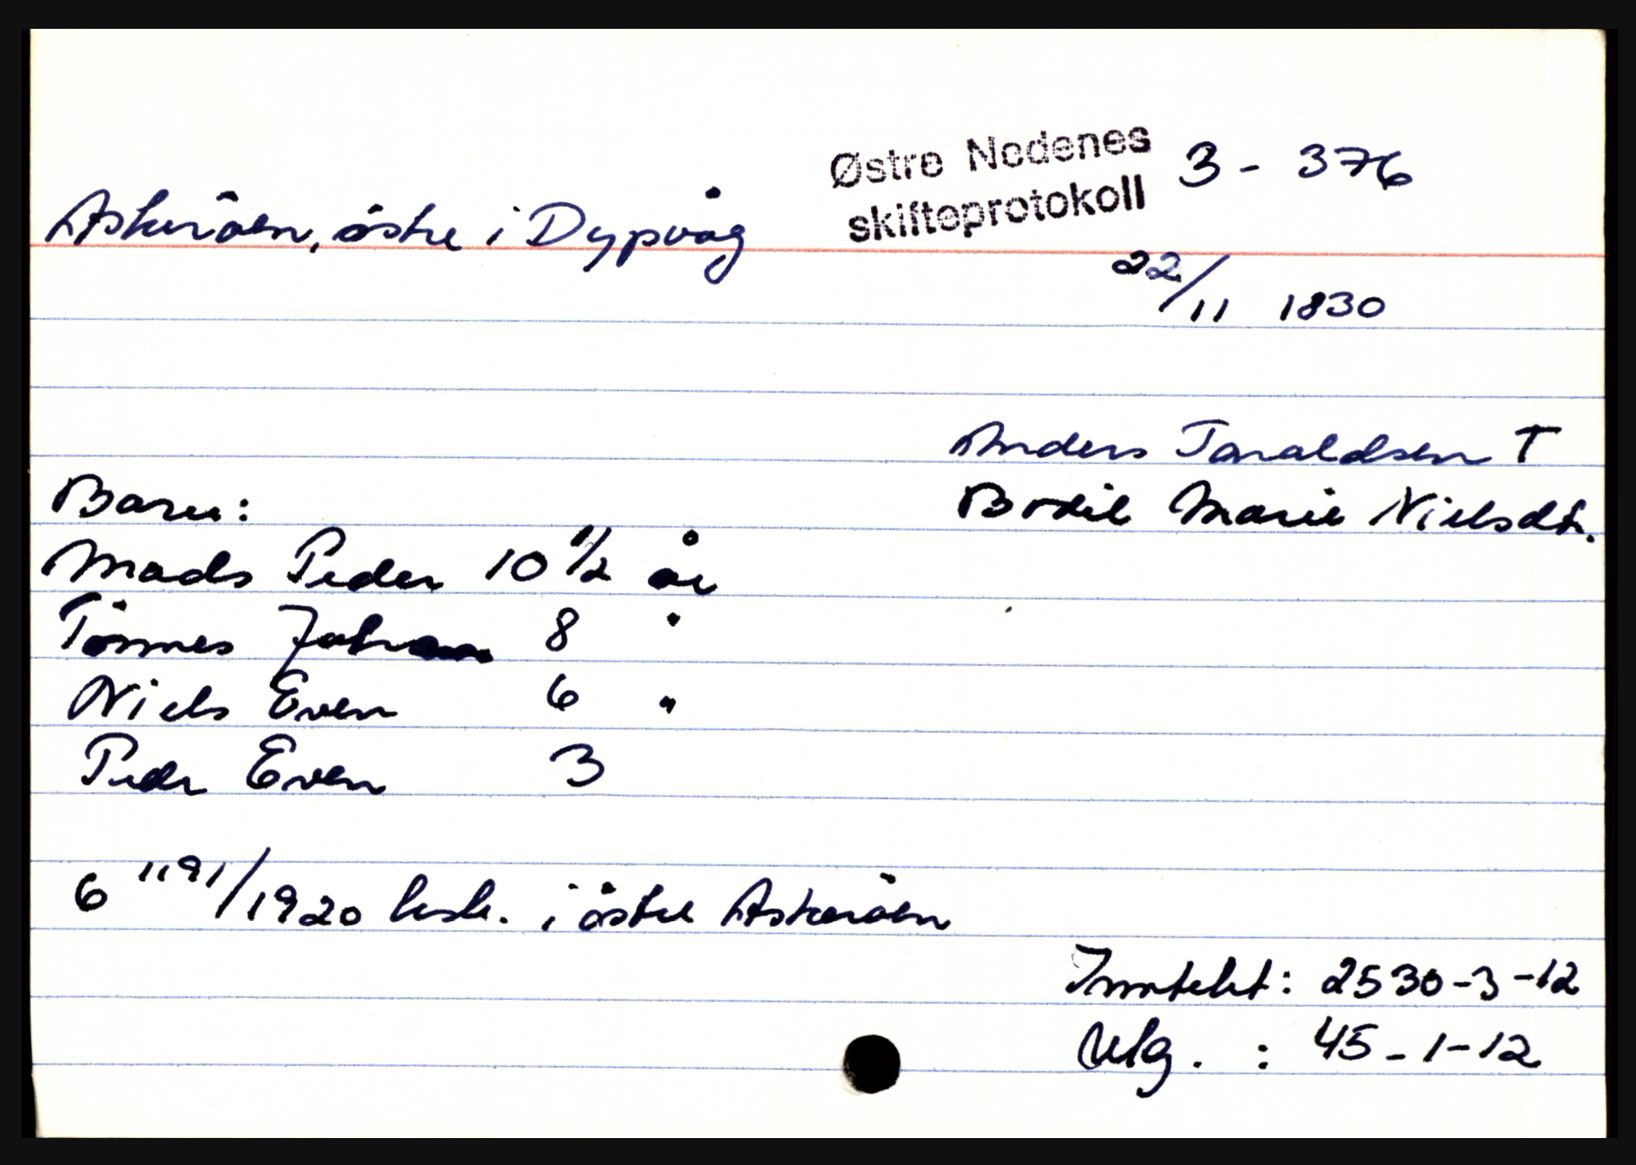 Østre Nedenes 3 - 376
skifteprotokoll
Askeröen, östre i Dypvåg
22/11 1830
Anders Taraldsen T
Bodil Marie Nielsdt.
Barn:
Mads Peder 10 1/2 år
Tönnes Johan 8 "
Niels Even 6 "
Peder Even 3
6 1191/1920 besk. i östre Askeröen
Inntekt: 2530-3-12
Utg. : 45-1-12